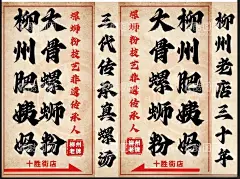 柳州肥姨妈
大骨螺蛳粉
螺蛳粉技艺非遗传承人
三代传承真螺汤
柳州老牌
十胜街店
大骨螺蛳粉
柳州肥姨妈
螺蛳粉技艺非遗传承人
柳州老店三十年
柳州老牌
十胜街店